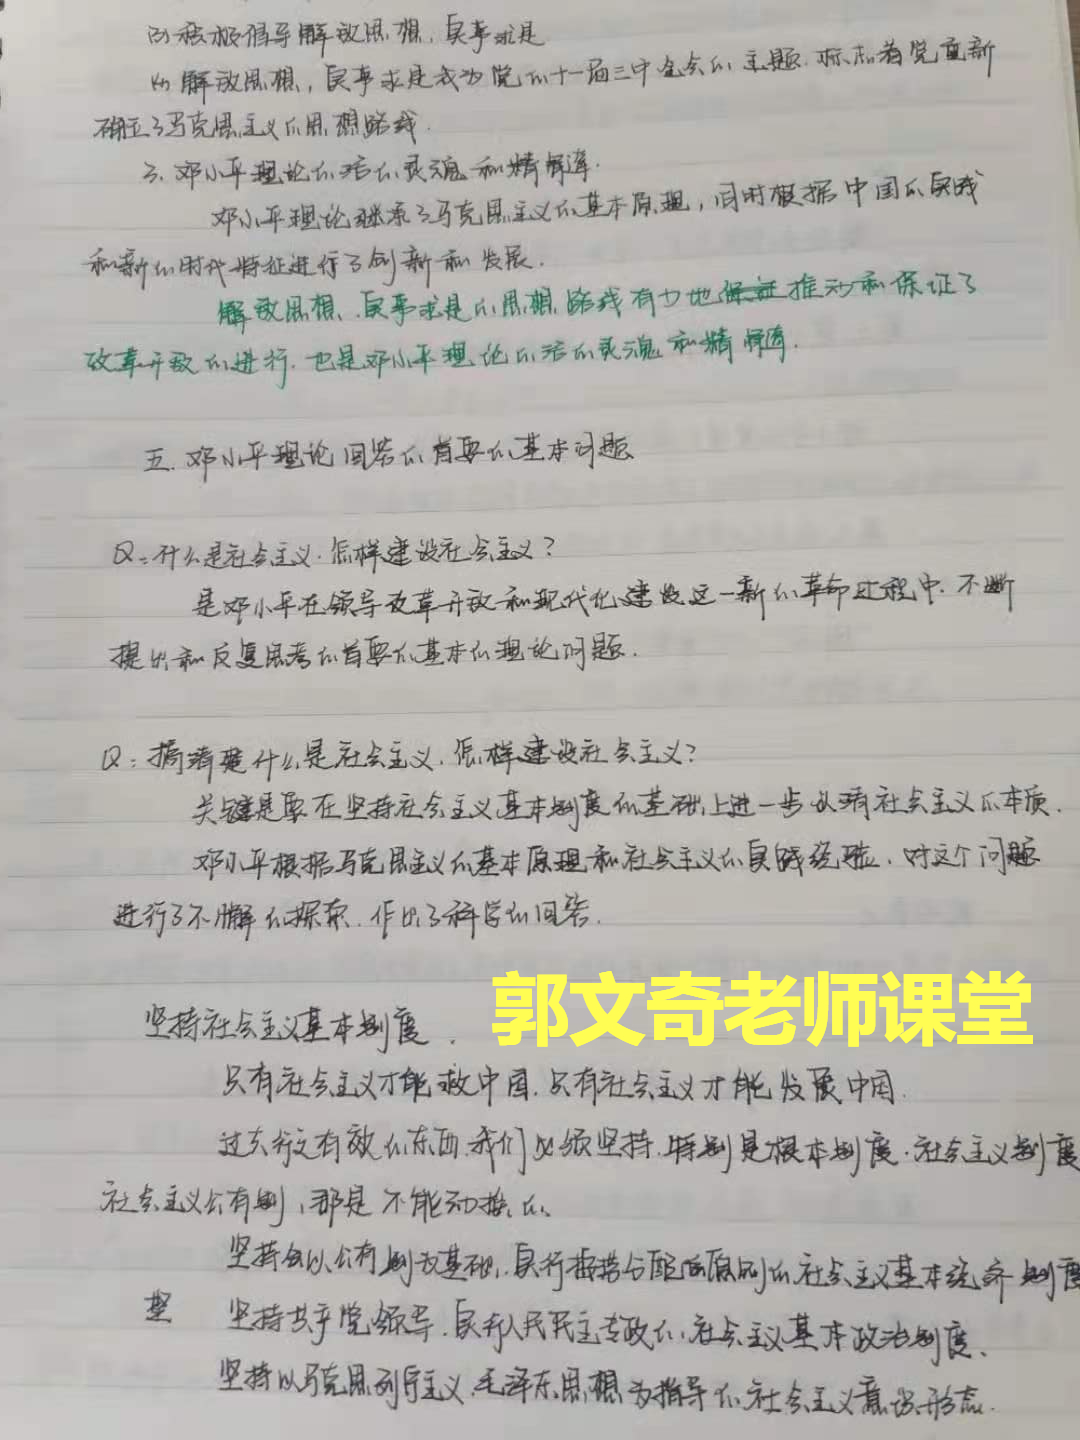 (3) 积极倡导解放思想、实事求是
(4) 解放思想，实事求是成为党的十一届三中全会的主题，标志着党重新
确立了马克思主义的思想路线.
3. 邓小平理论的活的灵魂和精髓.
邓小平理论继承了马克思主义的基本原理，同时根据中国的实践
和新的时代特征进行了创新和发展.
解放思想、实事求是的思想路线有力地保证推动和保证了
改革开放的进行. 也是邓小平理论的活的灵魂和精髓.
五. 邓小平理论回答的首要的基本问题
Q: 什么是社会主义. 怎样建设社会主义?
是邓小平在领导改革开放和现代化建设这一新的革命过程中. 不断
提出和反复思考的首要的基本的理论问题.
Q: 搞清楚什么是社会主义. 怎样建设社会主义?
关键是要在坚持社会主义基本制度的基础上进一步认清社会主义的本质.
邓小平根据马克思主义的基本原理和社会主义的实践经验、对这个问题
进行了不懈的探索. 作出了科学的回答.
郭文奇老师课堂
坚持社会主义基本制度.
只有社会主义才能救中国. 只有社会主义才能发展中国.
过去行之有效的东西. 我们必须坚持. 特别是根本制度. 社会主义制度
社会主义公有制, 那是不能动摇的.
坚持以公有制为基础. 实行按劳分配原则的社会主义基本经济制度
坚持共产党领导. 实行人民民主专政的社会主义基本政治制度.
坚持以马克思列宁主义. 毛泽东思想为指导的社会主义意识形态.